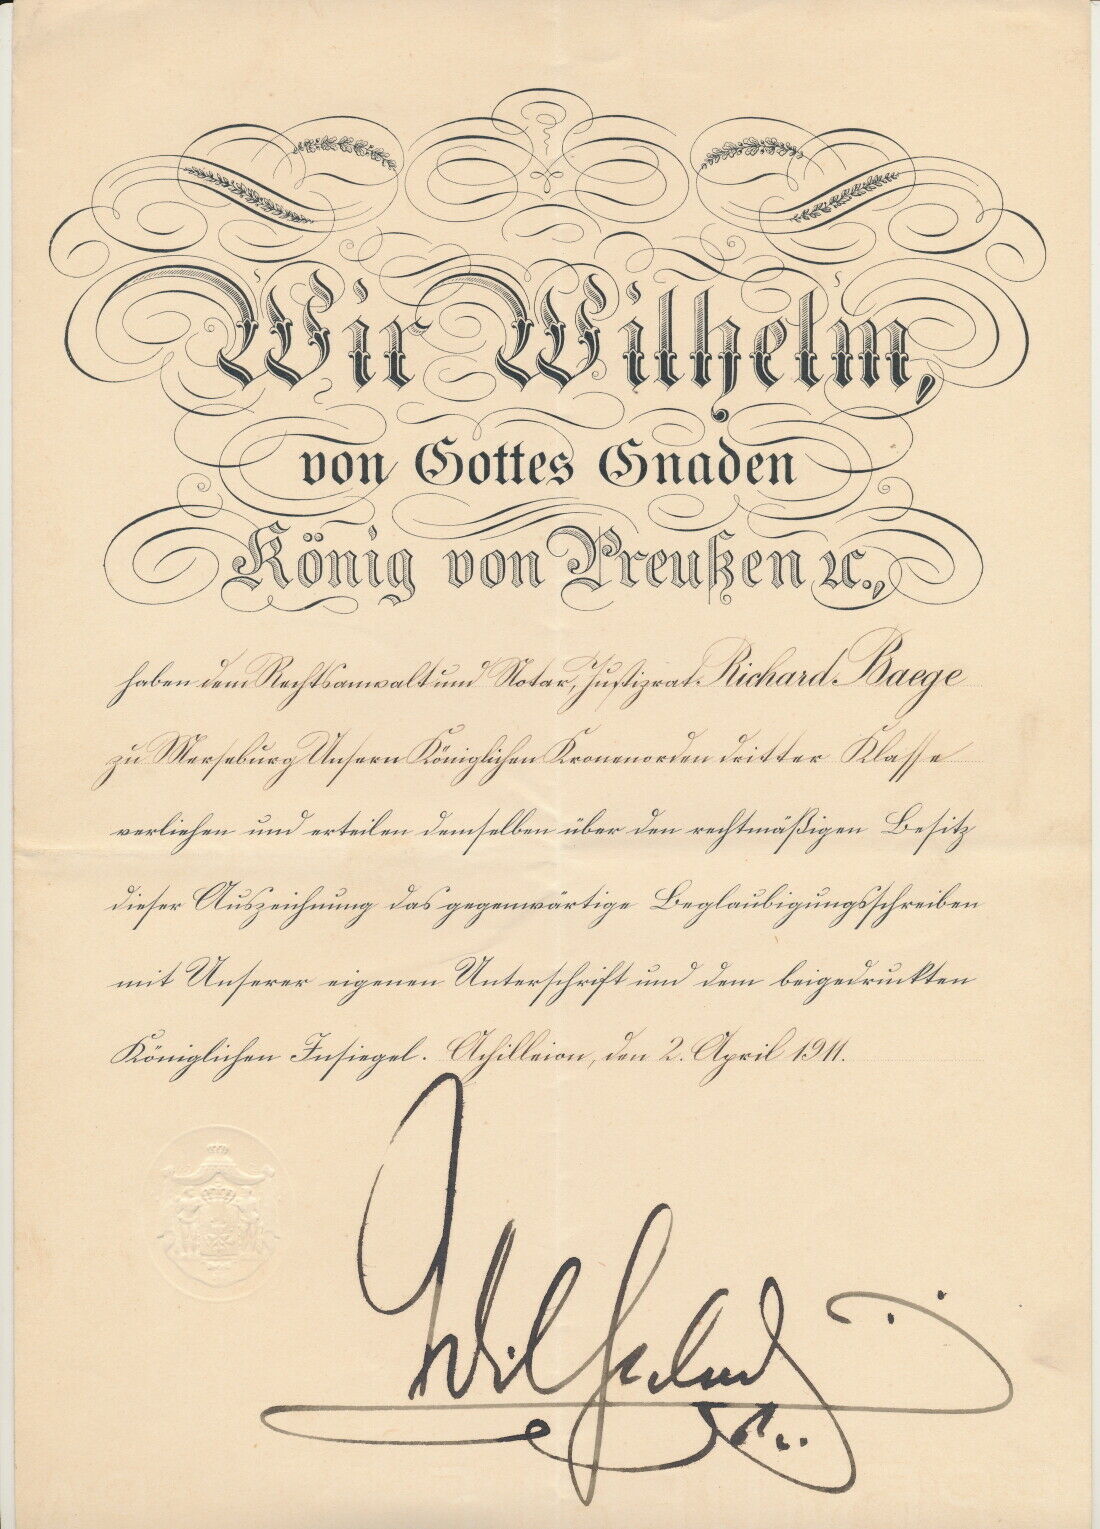 Wir Wilhelm,
von Gottes Gnaden
König von Preußen ꝛc.,
haben dem Rechtsanwalt und Notar, Justizrat Richard Baege
zu Merseburg Unsern Königlichen Kronenorden dritter Klasse
verliehen und erteilen demselben über den rechtmäßigen Besitz
dieser Auszeichnung das gegenwärtige Beglaubigungsschreiben
mit Unserer eigenen Unterschrift und dem beigedruckten
Königlichen Insiegel. Achilleion, den 2. April 1911.
Wilhelm